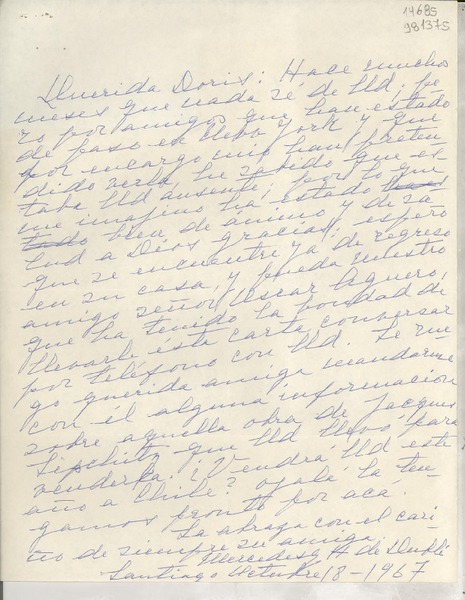 14685
981375
Querida Doris: Hace muchos
meses que nada sé de Ud; pe
ro por amigos que han estado
de paso en Nueva York y que
por encargo mío han preten
dido verla, he sabido que es-
taba Ud ausente; por lo que
me imagino ha estado
bien de ánimo y de sa
lud a Dios gracias; espero
que se encuentre ya de regreso
en su casa, y pueda nuestro
amigo señor Oscar Agüero,
que ha tenido la bondad de
llevarle ésta carta, conversar
por teléfono con Ud. Le rue
go querida amiga mandarme
con él alguna información
sobre aquella obra de Jacques
Lipchitz que Ud llevó para
venderla; ¿Vendrá Ud este
año a Chile? ojalá la ten-
gamos pronto por acá.
La abraza con el cari-
ño de siempre su amiga.
Mercedes H de
Santiago Octubre 18-1967